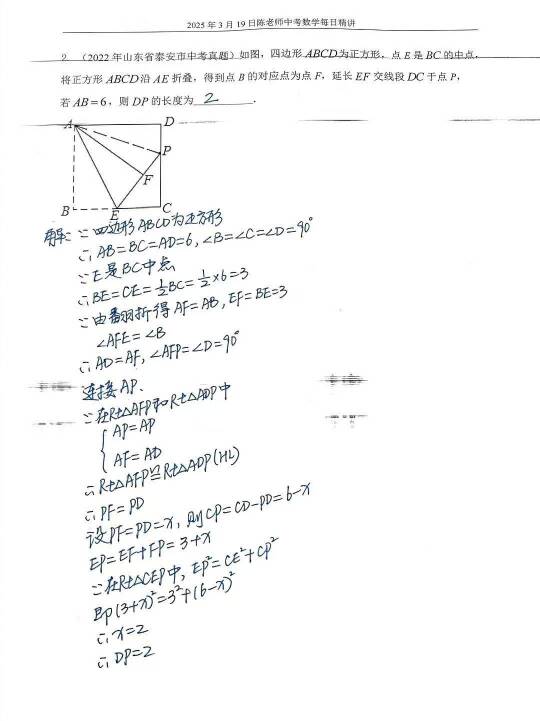 2025年3月19日陈老师中考数学每日精讲
2.（2022年山东省泰安市中考真题）如图，四边形ABCD为正方形，点E是BC的中点，
将正方形ABCD沿AE折叠，得到点B的对应点为点F，延长EF交线段DC于点P，
若AB=6，则DP的长度为 2 .
A
D
P
F
B
E
C
解：∵四边形ABCD为正方形
∴AB=BC=AD=6，∠B=∠C=∠D=90°
∵E是BC中点
∴BE=CE=½BC=½×6=3
∵由翻折得AF=AB，EF=BE=3
∠AFE=∠B
∴AD=AF，∠AFP=∠D=90°
连接AP.
∵在Rt△AFP和Rt△ADP中
AP=AP
AF=AD
∴Rt△AFP≌Rt△ADP(HL)
∴PF=PD
设PF=PD=x，则CP=CD-PD=6-x
EP=EF+FP=3+x
∵在Rt△CEP中，EP²=CE²+CP²
即(3+x)²=3²+(6-x)²
∴x=2
∴DP=2